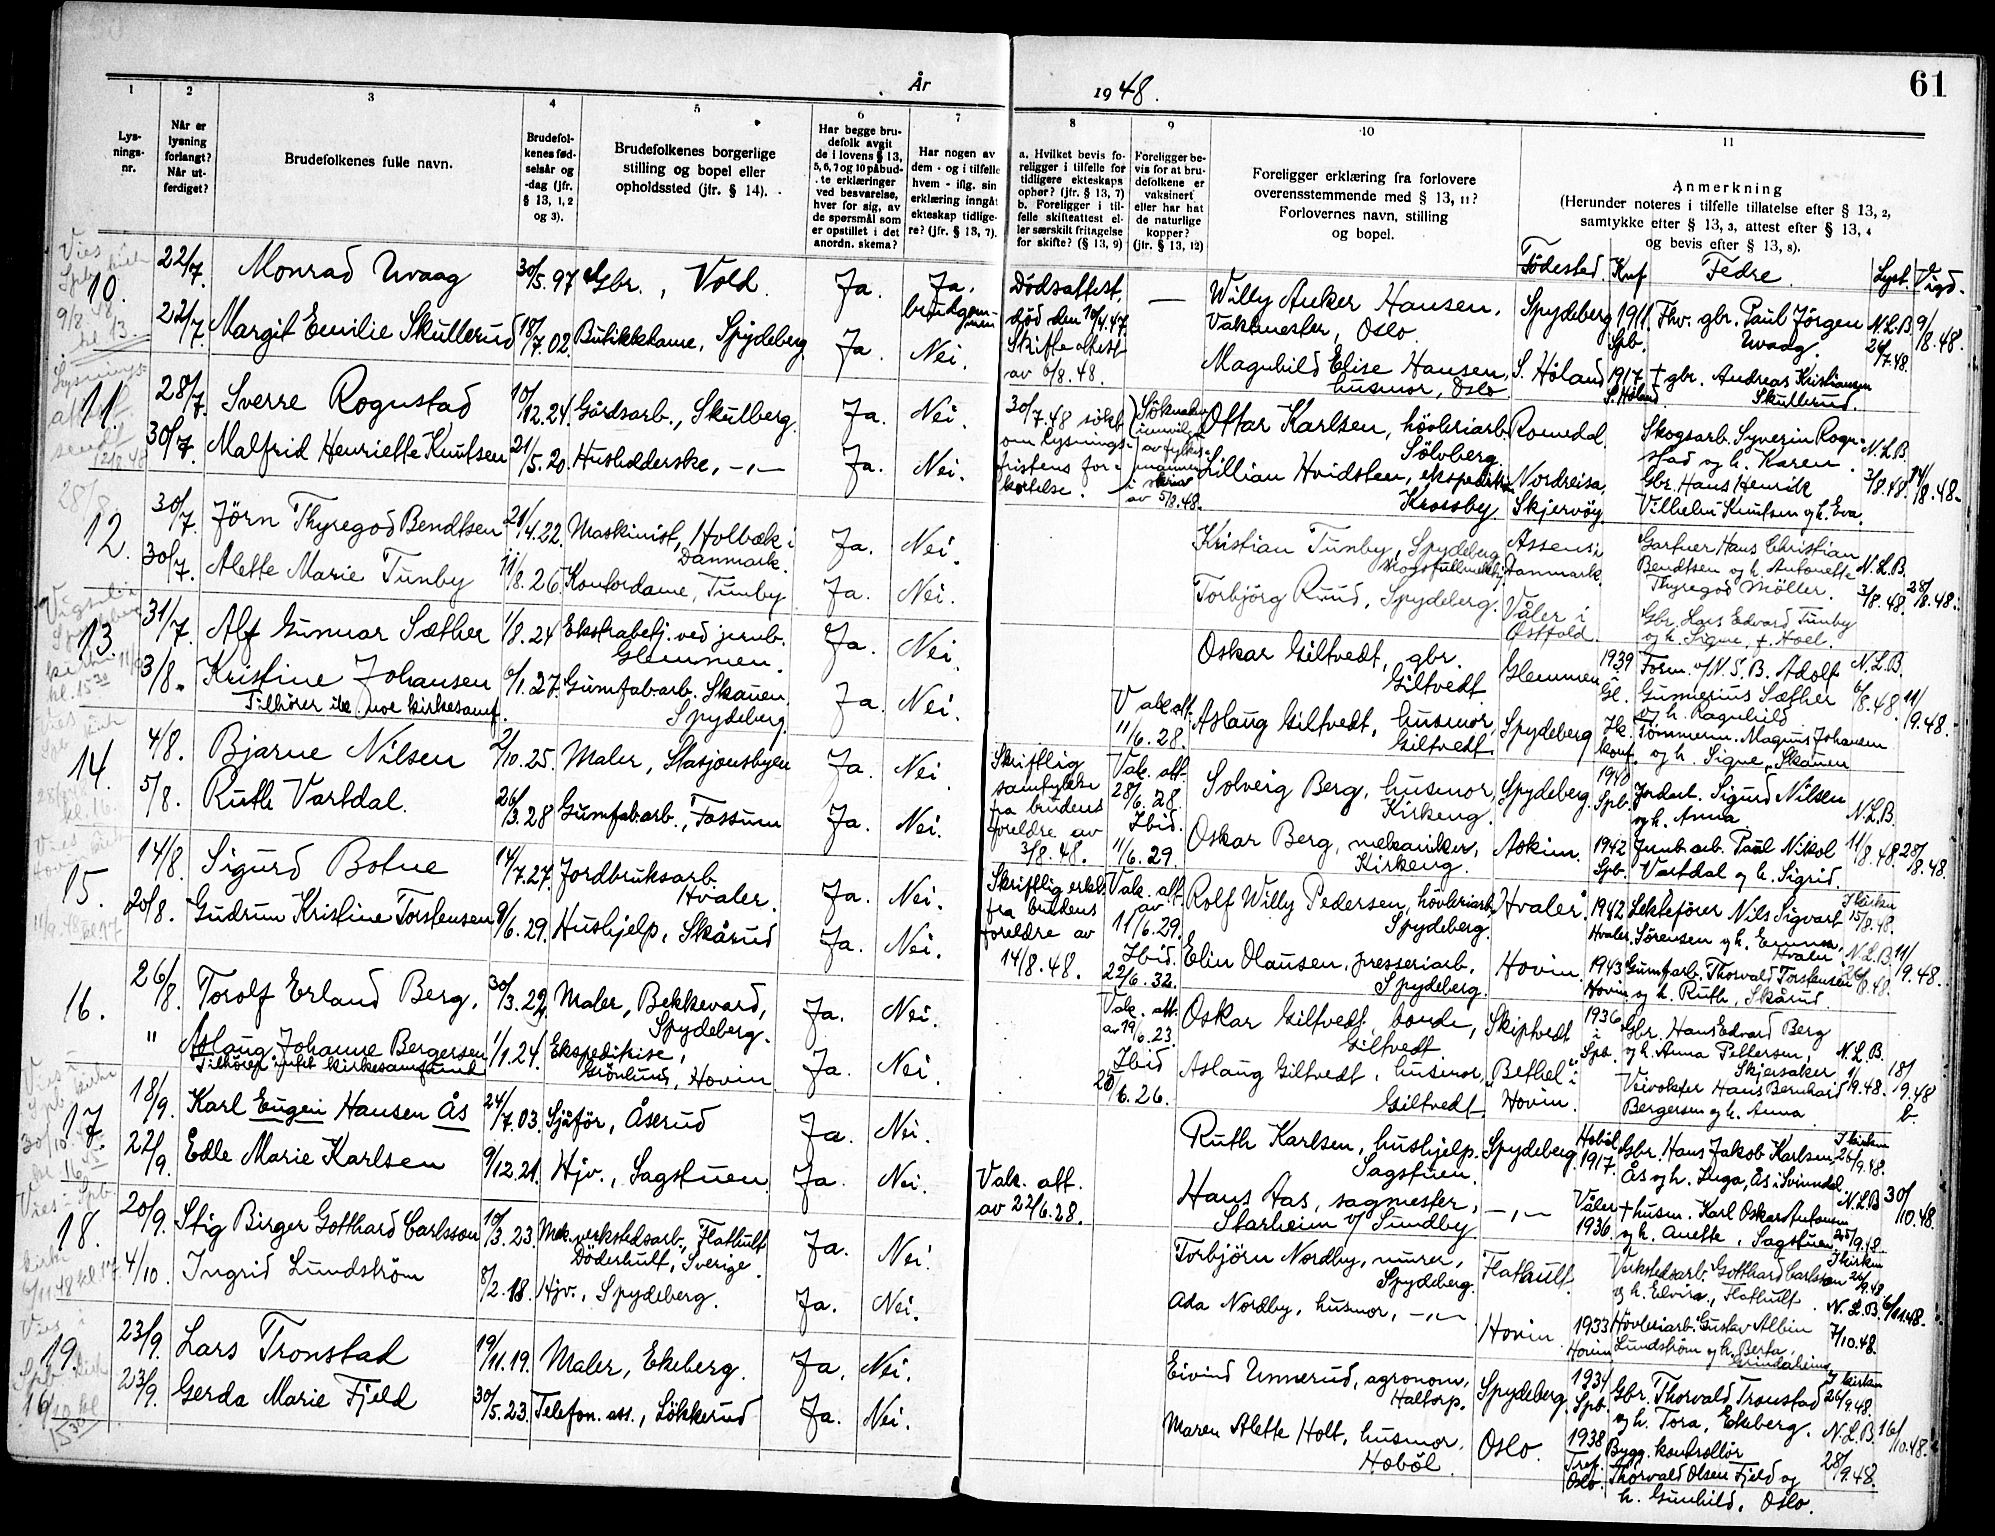 År
1948.
61
1
Lys-
nings-
nr.
2
Når er
lysning
forlangt?
Når ut-
ferdiget?
3
Brudefolkenes fulle navn.
4
Brudefol-
kenes fød-
selsår og
-dag (jfr.
§ 13, 1, 2
og 3).
5
Brudefolkenes borgerlige
stilling og bopel eller
opholdssted (jfr. § 14).
6
Har begge bru-
defolk avgit
de i lovens § 13,
5, 6, 7 og 10 påbud-
te erklæringer
ved besvarelse,
hver for sig, av
de spørsmål som
er opstillet i det
anordn. skema?
7
Har nogen av
dem - og i tilfelle
hvem - iflg. sin
erklæring inngåt
ekteskap tidlige-
re? (jfr. § 13, 7).
8
a. Hvilket bevis fo-
religger i tilfelle for
tidligere ekteskaps
ophør? (jfr. § 13, 7)
b. Foreligger i til-
felle skifteattest el-
ler særskilt fritagelse
for skifte? (§ 13, 9)
9
Foreligger be-
vis for at bru-
defolkene er
vaksinert
eller har hat
de naturlige
kopper?
(jfr. § 13, 12)
10
Foreligger erklæring fra forlovere
overensstemmende med § 13, 11?
Forlovernes navn, stilling
og bopel.
11
Anmerkning
(Herunder noteres i tilfelle tillatelse efter § 13, 2,
samtykke efter § 13, 3, attest efter § 13, 4
og bevis efter § 13, 8).
Födested. Knf. Fedre. Lyst. Vigd.
10.
22/7. Monrad Uvaag 30/5.97 Gbr., Vold. Ja. Ja, brudgommen
Dödsattest, död den 10/4.47. Skifteattest av 6/8.48.
Willy Anker Hansen,
Vaktmester, Oslo.
Spydeberg 1911. Spb. Fhv. gbr. Paul Jörgen
Uvaag. N.L.B. 26/7.48. 9/8.48.
22/7. Margit Emilie Skullerud 18/7.02. Butikkdame, Spydeberg Ja. Nei.
Magnhild Elise Hansen,
husmor, Oslo
S. Höland 1917 S. Höland † gbr. Andreas Kristiansen
Skullerud.
11.
28/7. Sverre Rognstad 10/12.24. Gårdsarb., Skulberg. Ja. Nei.
30/7.48 sökt
om lysnings-
fristens for-
kortelse.
av 5/8.48.
Ottar Karlsen, hövleriarb.
Sölvberg.
Romedal. Skogsarb. Syverin Rogn-
stad og h. Karen. N.L.B. 3/8.48. 14/8.48.
30/7. Malfrid Henriette Knutsen 21/5.20. Husholderske, -"- Ja. Nei.
Lillian Hvidsten, ekspeditrise
Krossby.
Nordreisa, Skjervöy. Gbr. Hans Henrik
Vilhelm Knutsen og h. Eva.
12.
30/7. Jörn Thyregod Bendtsen 21/4.22. Maskinist, Holbæk i
Danmark. Ja. Nei.
Kristian Tunby, Spydeberg
Assens i Danmark. Gartner Hans Christian
Bendtsen og h. Antonette
Thyregod Möller. N.L.B. 3/8.48. 28/8.48.
30/7. Alette Marie Tunby 11/8.26. Kontordame, Tunby Ja. Nei.
Torbjörg Ruud, Spydeberg.
Våler i Östfold. Gbr. Lars Edvard Tunby
og h. Signe, f. Hoel.
13.
31/7. Alf Gunnar Sæther 1/8.24 Ekstrabetj. ved jernb.
Glemmen. Ja. Nei.
Oskar Giltvedt, gbr.
Giltvedt
Glemmen 1939 Gl. Form. v/N.S.B. Adolf
Gunnerius Sæther
og h. Ragnhild N.L.B. 6/8.48. 11/9.48.
3/8. Kristine Johansen 6/1.27. Gumfab.arb. Skauen,
Tilhörer ikke noe kirkesamf. Spydeberg. Ja. Nei.
Vak. att. 11/6.28.
Aslaug Giltvedt, husmor,
Giltvedt
Spydeberg Ik. konf. Tömmerm. Magnus Johansen
og h. Signe, Skauen
14.
4/8. Bjarne Nilsen 2/10.25. Maler, Stasjonsbyen Ja. Nei
Skriftlig
samtykke
fra brudens
foreldre av
3/8.48.
Vak. att. 28/6.28.
Solveig Berg, husmor,
Kirkeng.
Spydeberg. 1940 Spb. Jordarb. Sigurd Nilsen
og h. Anna N.L.B. 11/8.48. 28/8.48.
5/8. Ruth Vartdal. 26/3.28 Gumfab.arb., Fossum Ja. Nei.
Ibid. 11/6.29.
Oskar Berg, mekaniker,
Kirkeng.
Askim. 1942 Spb. Jernb.arb. Paul Nikol
Vartdal og h. Sigrid.
15.
14/8. Sigurd Botne 14/7.27. Jordbruksarb.
Hvaler. Ja. Nei.
Skriftlig erkl.
fra brudens
foreldre av
14/8.48.
Vak. att. av 11/6.29.
Rolf Willy Pedersen, hövleriarb.
Spydeberg.
Hvaler. 1942 Hvaler. Lekteförer Nils Sigvart
Sörensen og h. Emma,
Hvaler I kirken 15/8.48. N.L.B. 11/9.48.
20/8. Gudrun Kristine Torstensen 9/6.29. Hushjelp, Skårud Ja. Nei.
Ibid. 22/6.32.
Elin Olausen, presseriarb.
Spydeberg.
Hovin. 1943 Hovin Gumfarb. Thorvald Torstensen
og h. Ruth, Skårud
16.
26/8. Torolf Erland Berg, 30/3.22. Maler, Bekkevard,
Spydeberg. Ja. Nei.
Vak. att. av 19/6.23.
Oskar Giltvedt, bonde,
Giltvedt
Skiptvedt 1936 i Spb. Gbr. Hans Edvard Berg
og h. Anna Pettersen,
Skjersaker N.L.B. 1/9.48. 18/9.48
" Aslaug Johanne Bergersen 1/1.24. Ekspeditrise,
Tilhörer intet kirkesamfund Grönlund, Hovin Ja. Nei.
Ibid 28/6.26.
Aslaug Giltvedt, husmor,
Giltvedt
"Bethel" i Hovin. Veivokter Hans Bernhard
Bergersen og h. Anna
17.
18/9. Karl Eugen Hansen Ås 24/7.03. Sjåför, Åserud Ja. Nei.
Ruth Karlsen, hushjelp.
Sagstuen.
Spydeberg Hoböl 1917. Gbr. Hans Jakob Karlsen,
Ås og h. Inga, Ås i Svinndal I kirken 26/9.48. N.L.B. 30/10.48.
22/9. Edle Marie Karlsen 9/12.21. Hjv., Sagstuen. Ja. Nei.
Vak. att.
av 22/6.28.
Hans Aas, sagmester,
Starheim v/ Sundby
-"- Våler 1936. † husm. Karl Oskar Antonsen
og h. Anette, Sagstuen
18.
20/9. Stig Birger Gotthard Carlsson 10/3.23. Mek. verkstedsarb., Flathult
Döderhult, Sverige. Ja. Nei.
Torbjörn Nordby, murer,
Spydeberg.
Flathult. Verkstedsarb. Gotthard Carlsson
og h. Elvira, Flathult. I kirken 26/9.48 N.L.B. 7/10.48. 6/11.48.
4/10. Ingrid Lundström 8/2.18. Hjv., Spydeberg. Ja. Nei.
Ada Nordby, husmor, -"-
Hovin 1933 Hovin Hövleriarb. Gustav Albin
Lundström og h. Berta,
Grindaheim
19.
23/9. Lars Tronstad 19/11.19. Maler, Ekeberg. Ja. Nei.
Eivind Unnerud, agronom,
Haltorp.
Spydeberg. 1934 Spb. Gbr. Thorvald Tronstad
og h. Tora, Ekeberg. I kirken 26/9.48. N.L.B. 28/9.48. 16/10.48.
23/9. Gerda Marie Fjeld 30/5.23. Telefon. ass., Lökkerud Ja. Nei.
Maren Alette Holt, husmor,
Hoböl.
Oslo. 1938 Tref. Oslo. Bygg. kontrollör
Thorvald Olsen Fjeld og
h. Gunhild, Oslo.